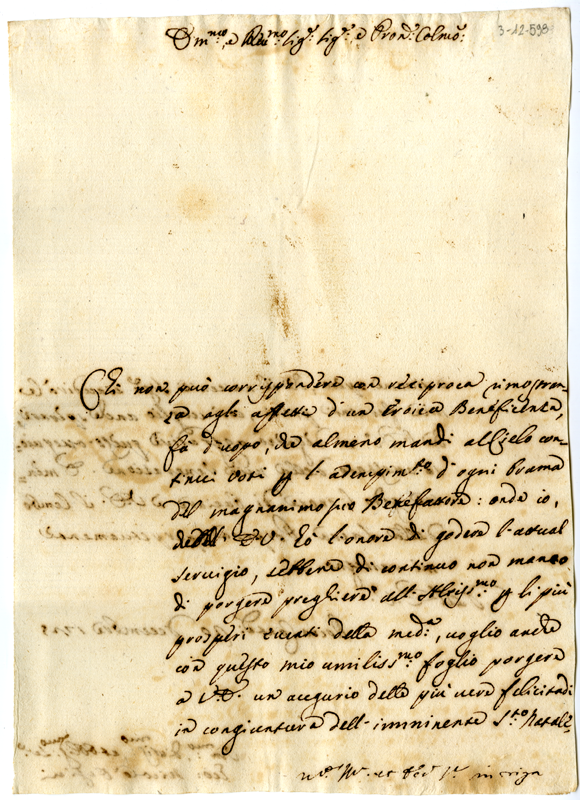 3-12-598
Ill.mo e Rev.mo Sig.r Sig.r e Pron. Colmo:
Chi non può corrispondere con reciproca rimostran-
za agli affetti d'un Eroica Beneficenza,
fà d'uopo, che almeno mandi al Cielo con-
tinui voti p l'adempim.to d'ogni brama
del magnanimo suo Benefattore: onde io,
ho l'onore di godere l'attual
servigio, sebbene di continuo non manco
di porgere preghiere all'Altiss.mo p li più
prosperi eventi della med.a, voglio anche
con questo mio umiliss.mo foglio porgere
a un augurio delle più vere felicitadi
in congiuntura dell'imminente S.to Natale